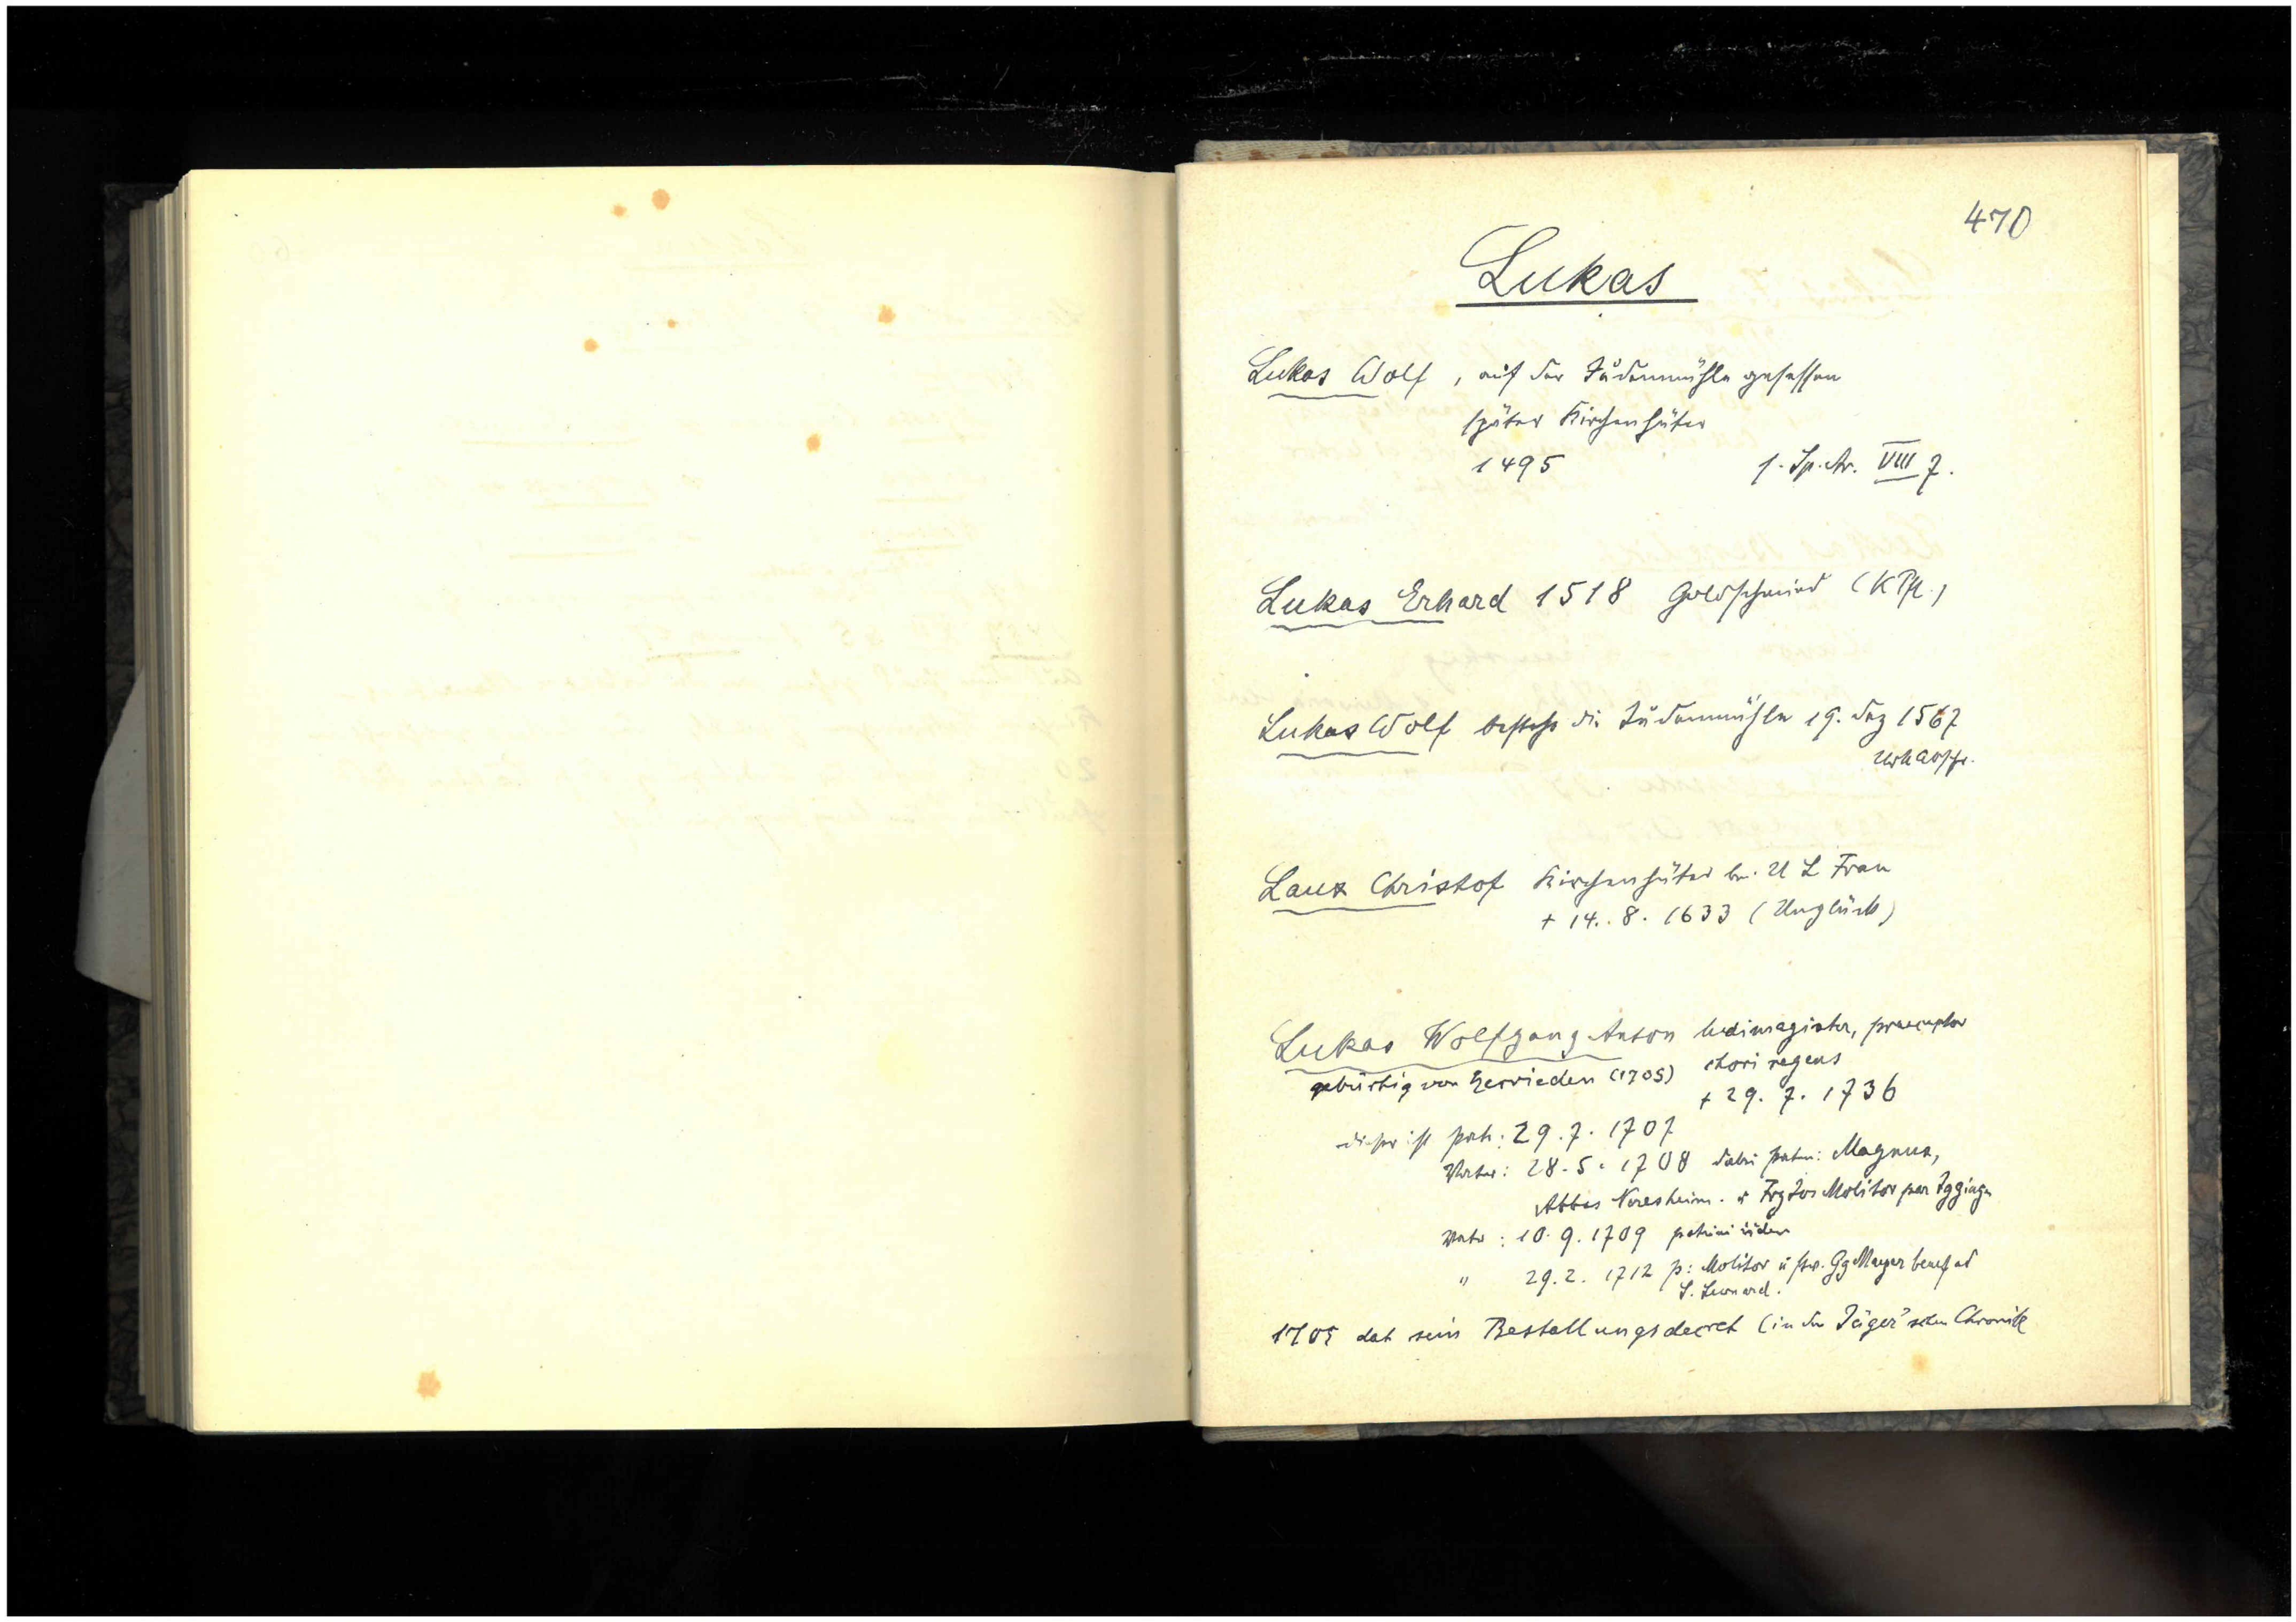 470
Lukas
Lukas Wolf, auf der Judenmühle gesessen
später Kirchenhüter
1495 1. Sp. Ar. VIII 7.
Lukas Erhard 1518 Goldschmied (KPfl.)
Lukas Wolf besteht die Judenmühle 19. Dez 1567
Laux Christof Kirchenhüter b. U L Frau
+ 14. 8. 1633 (Unglück)
Lukas Wolfgang Anton ludimagister, praeceptor
gebürtig von Herrieden (1705) chori regens
+ 29. 7. 1736
dieser ist patr: 29. 7. 1707
Vater: 28. 5. 1708 dabei patrin: Magnus,
Abbas Neresheim. u Frz Jos Molitor par Iggingen
Vater: 10. 9. 1709 patrini iidem
" 29. 2. 1712 p: Molitor u Gg Mayer benef ad
S. Leonard.
1705 dat sein Bestallungsdecret (in der Jäger'schen Chronik